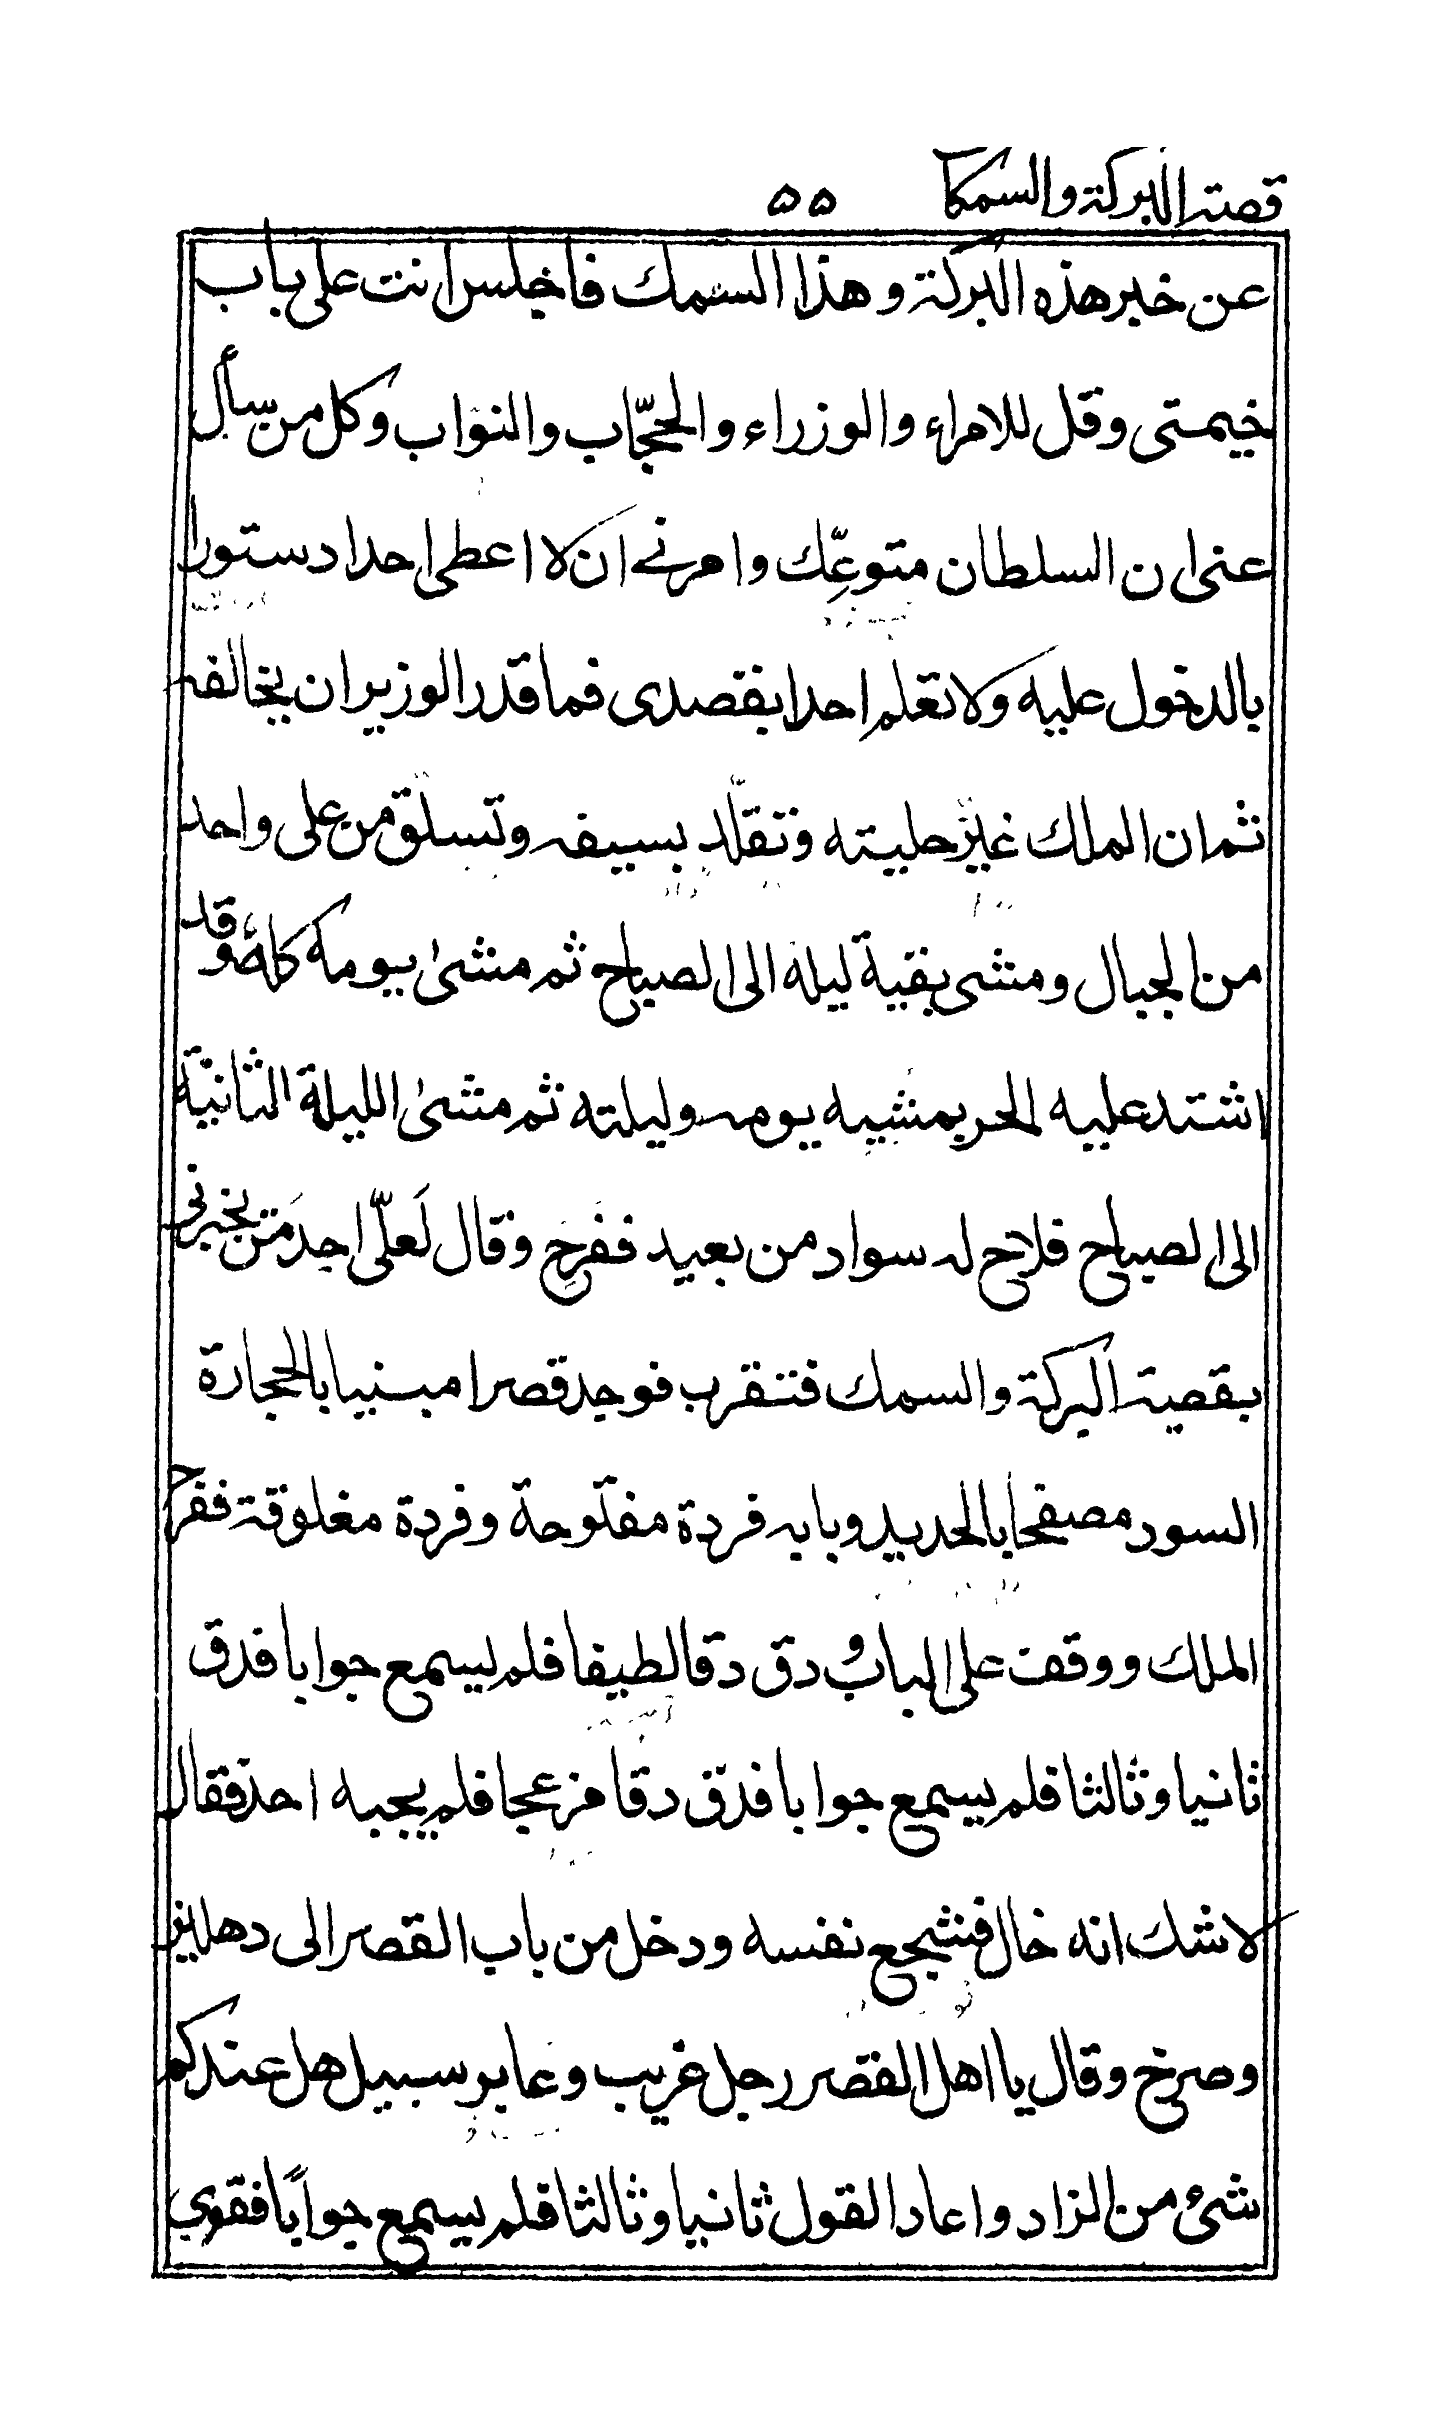 قصة البركة والسمكا ۵۵
عن خبر هذه البركة وهذا السمك فاجلس انت على باب
خيمتى وقل للامراء والوزراء والحجّاب والنوّاب وكل من سأل
عنى ان السلطان متوعّك وامرنے ان لا اعطى احدا دستورا
بالدخول عليه ولا تعلم احدا بقصدى فما قدر الوزير ان يخالفه
ثم ان الملك غيّر حليته وتقلّد بسيفه وتسلق من على واحد
من الجبال ومشى بقية ليله الى الصباح ثم مشىٰ يومه كله وقد
اشتد عليه الحر بمشيه يومه وليلته ثم مشىٰ الليلة الثانيّة
الى الصباح فلاح له سواد من بعيد ففرح وقال لَعلّى اجد مَن يخبرنى
بقصية البركة والسمك فتقرب فوجد قصرا مبنيا بالحجارة
السود مصفحا بالحديد وبابه فردة مفتوحة وفردة مغلوقة ففرح
الملك ووقف على الباب و دق دقا لطيفا فلم يسمع جوابا فدق
ثانيا وثالثا فلم يسمع جوابا فدق دقا مزعجا فلم يجبه احد فقال
لا شك انه خال فتشجع نفسه ودخل من باب القصر الى دهليز
وصرخ وقال يا اهل القصر رجل غريب وعابر سبيل هل عندكم
شئ من الزاد واعاد القول ثانيا وثالثا فلم يسمع جواباً فقوي